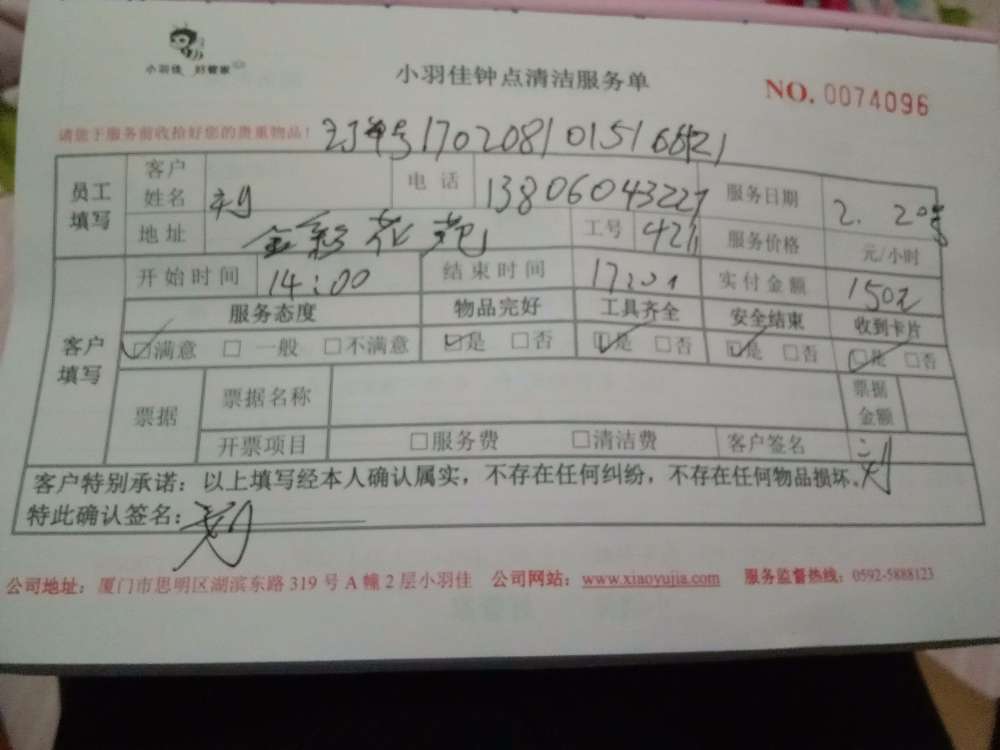 小羽佳 好管家
小羽佳钟点清洁服务单
NO. 0074096
请您于服务前收拾好您的贵重物品！
员工填写 客户姓名 刘 电话 13806043227 服务日期 2. 20号
地址 金彩花苑 工号 服务价格 元/小时
客户填写 开始时间 14:00 结束时间 实付金额 150元
服务态度 物品完好 工具齐全 安全结束 收到卡片
☑满意 □一般 □不满意 ☑是 □否 ☑是 □否 ☑是 □否 ☑是 □否
票据 票据名称 票据金额
开票项目 □服务费 □清洁费 客户签名 刘
客户特别承诺：以上填写经本人确认属实，不存在任何纠纷，不存在任何物品损坏。
特此确认签名：刘
公司地址：厦门市思明区湖滨东路 319 号 A 幢 2 层小羽佳 公司网站：www.xiaoyujia.com 服务监督热线：0592-5888123